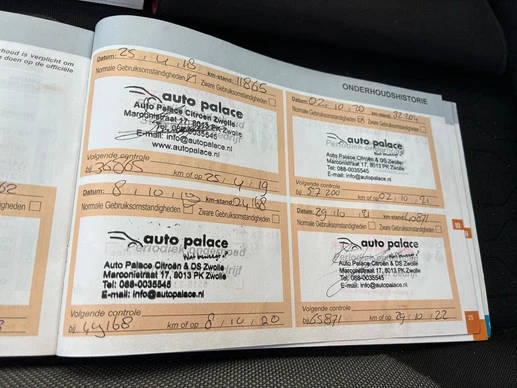 houd is verplicht om
ng doen op de officiële
ONDERHOUDSHISTORIE
Datum: 25 / 4 / 18 km-stand: 11865
Normale Gebruiksomstandigheden Zware Gebruiksomstandigheden
auto palace
Auto Palace Citroën Zwolle
Marconistraat 17, 8013 PK Zwolle
Tel. 088-0035545
E-mail: info@autopalace.nl
www.autopalace.nl
Volgende controle
bij 36865 km of op 25 / 4 / 19
Datum: 8 / 10 / 19 km-stand: 24168
Normale Gebruiksomstandigheden Zware Gebruiksomstandigheden
auto palace
Auto Palace Citroën & DS Zwolle
Marconistraat 17, 8013 PK Zwolle
Tel: 088-0035545
E-mail: info@autopalace.nl
Volgende controle
bij 49168 km of op 8 / 10 / 20
Datum: 02 / 10 / 20 km-stand: 32204
Normale Gebruiksomstandigheden Zware Gebruiksomstandigheden
auto palace
Auto Palace Citroën & DS Zwolle
Marconistraat 17, 8013 PK Zwolle
Tel: 088-0035545
E-mail: info@autopalace.nl
Volgende controle
bij 57200 km of op 02 / 10 / 21
Datum: 29 / 10 / 21 km-stand: 40871
Normale Gebruiksomstandigheden Zware Gebruiksomstandigheden
auto palace
Auto Palace Citroën & DS Zwolle
Marconistraat 17, 8013 PK Zwolle
Tel: 088-0035545
E-mail: info@autopalace.nl
Volgende controle
bij 65871 km of op 29 / 10 / 22
25